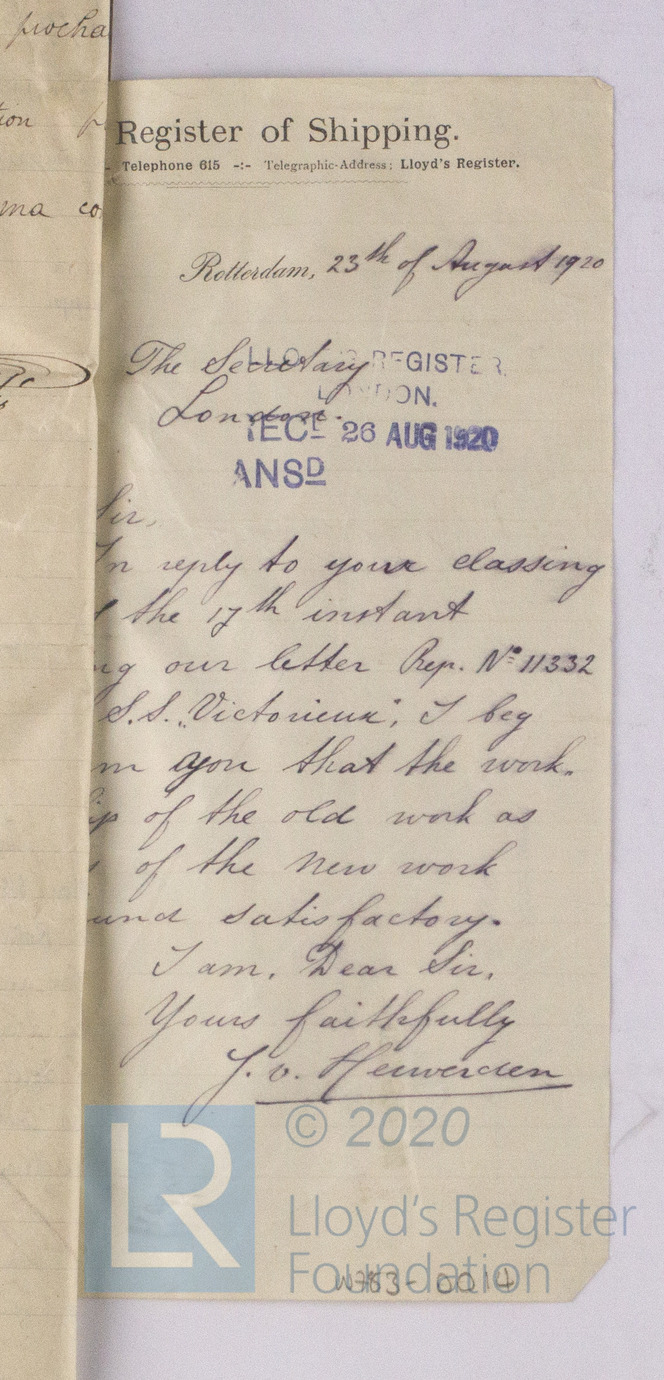 procha
tion p
ma co
Register of Shipping.
Telephone 615 -:- Telegraphic-Address: Lloyd's Register.
Rotterdam, 23th of August 1920
The Secretary
LLOYD'S REGISTER,
LONDON.
London.
RECD 26 AUG 1920
ANSD
Sir,
In reply to your classing
the 17th instant
ng our letter Rep. No 11332
S.S. „Victorieux", I beg
m you that the work-
ip of the old work as
s of the new work
und satisfactory.
I am, Dear Sir,
Yours faithfully
J. v. Herwerden
LR
© 2020
Lloyd's Register
Foundation
W783-0014